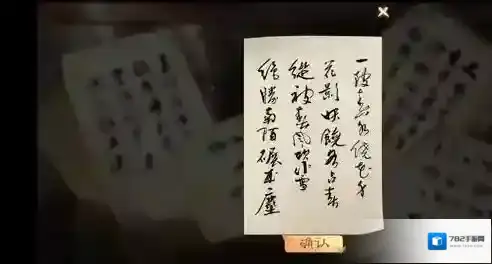 一陂春水繞花身
花影妖饒各占春
縱被春風吹作雪
絕勝南陌碾成塵
确认
782手游网